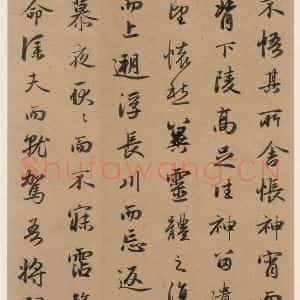 不悟其所舍悵神宵而
背下陵高足往神留遺
望懷愁冀靈體之復
而上遡浮長川而忘返
慕夜耿耿而不寐霑繁
命僕夫而就駕吾將歸
Shufawang.CN